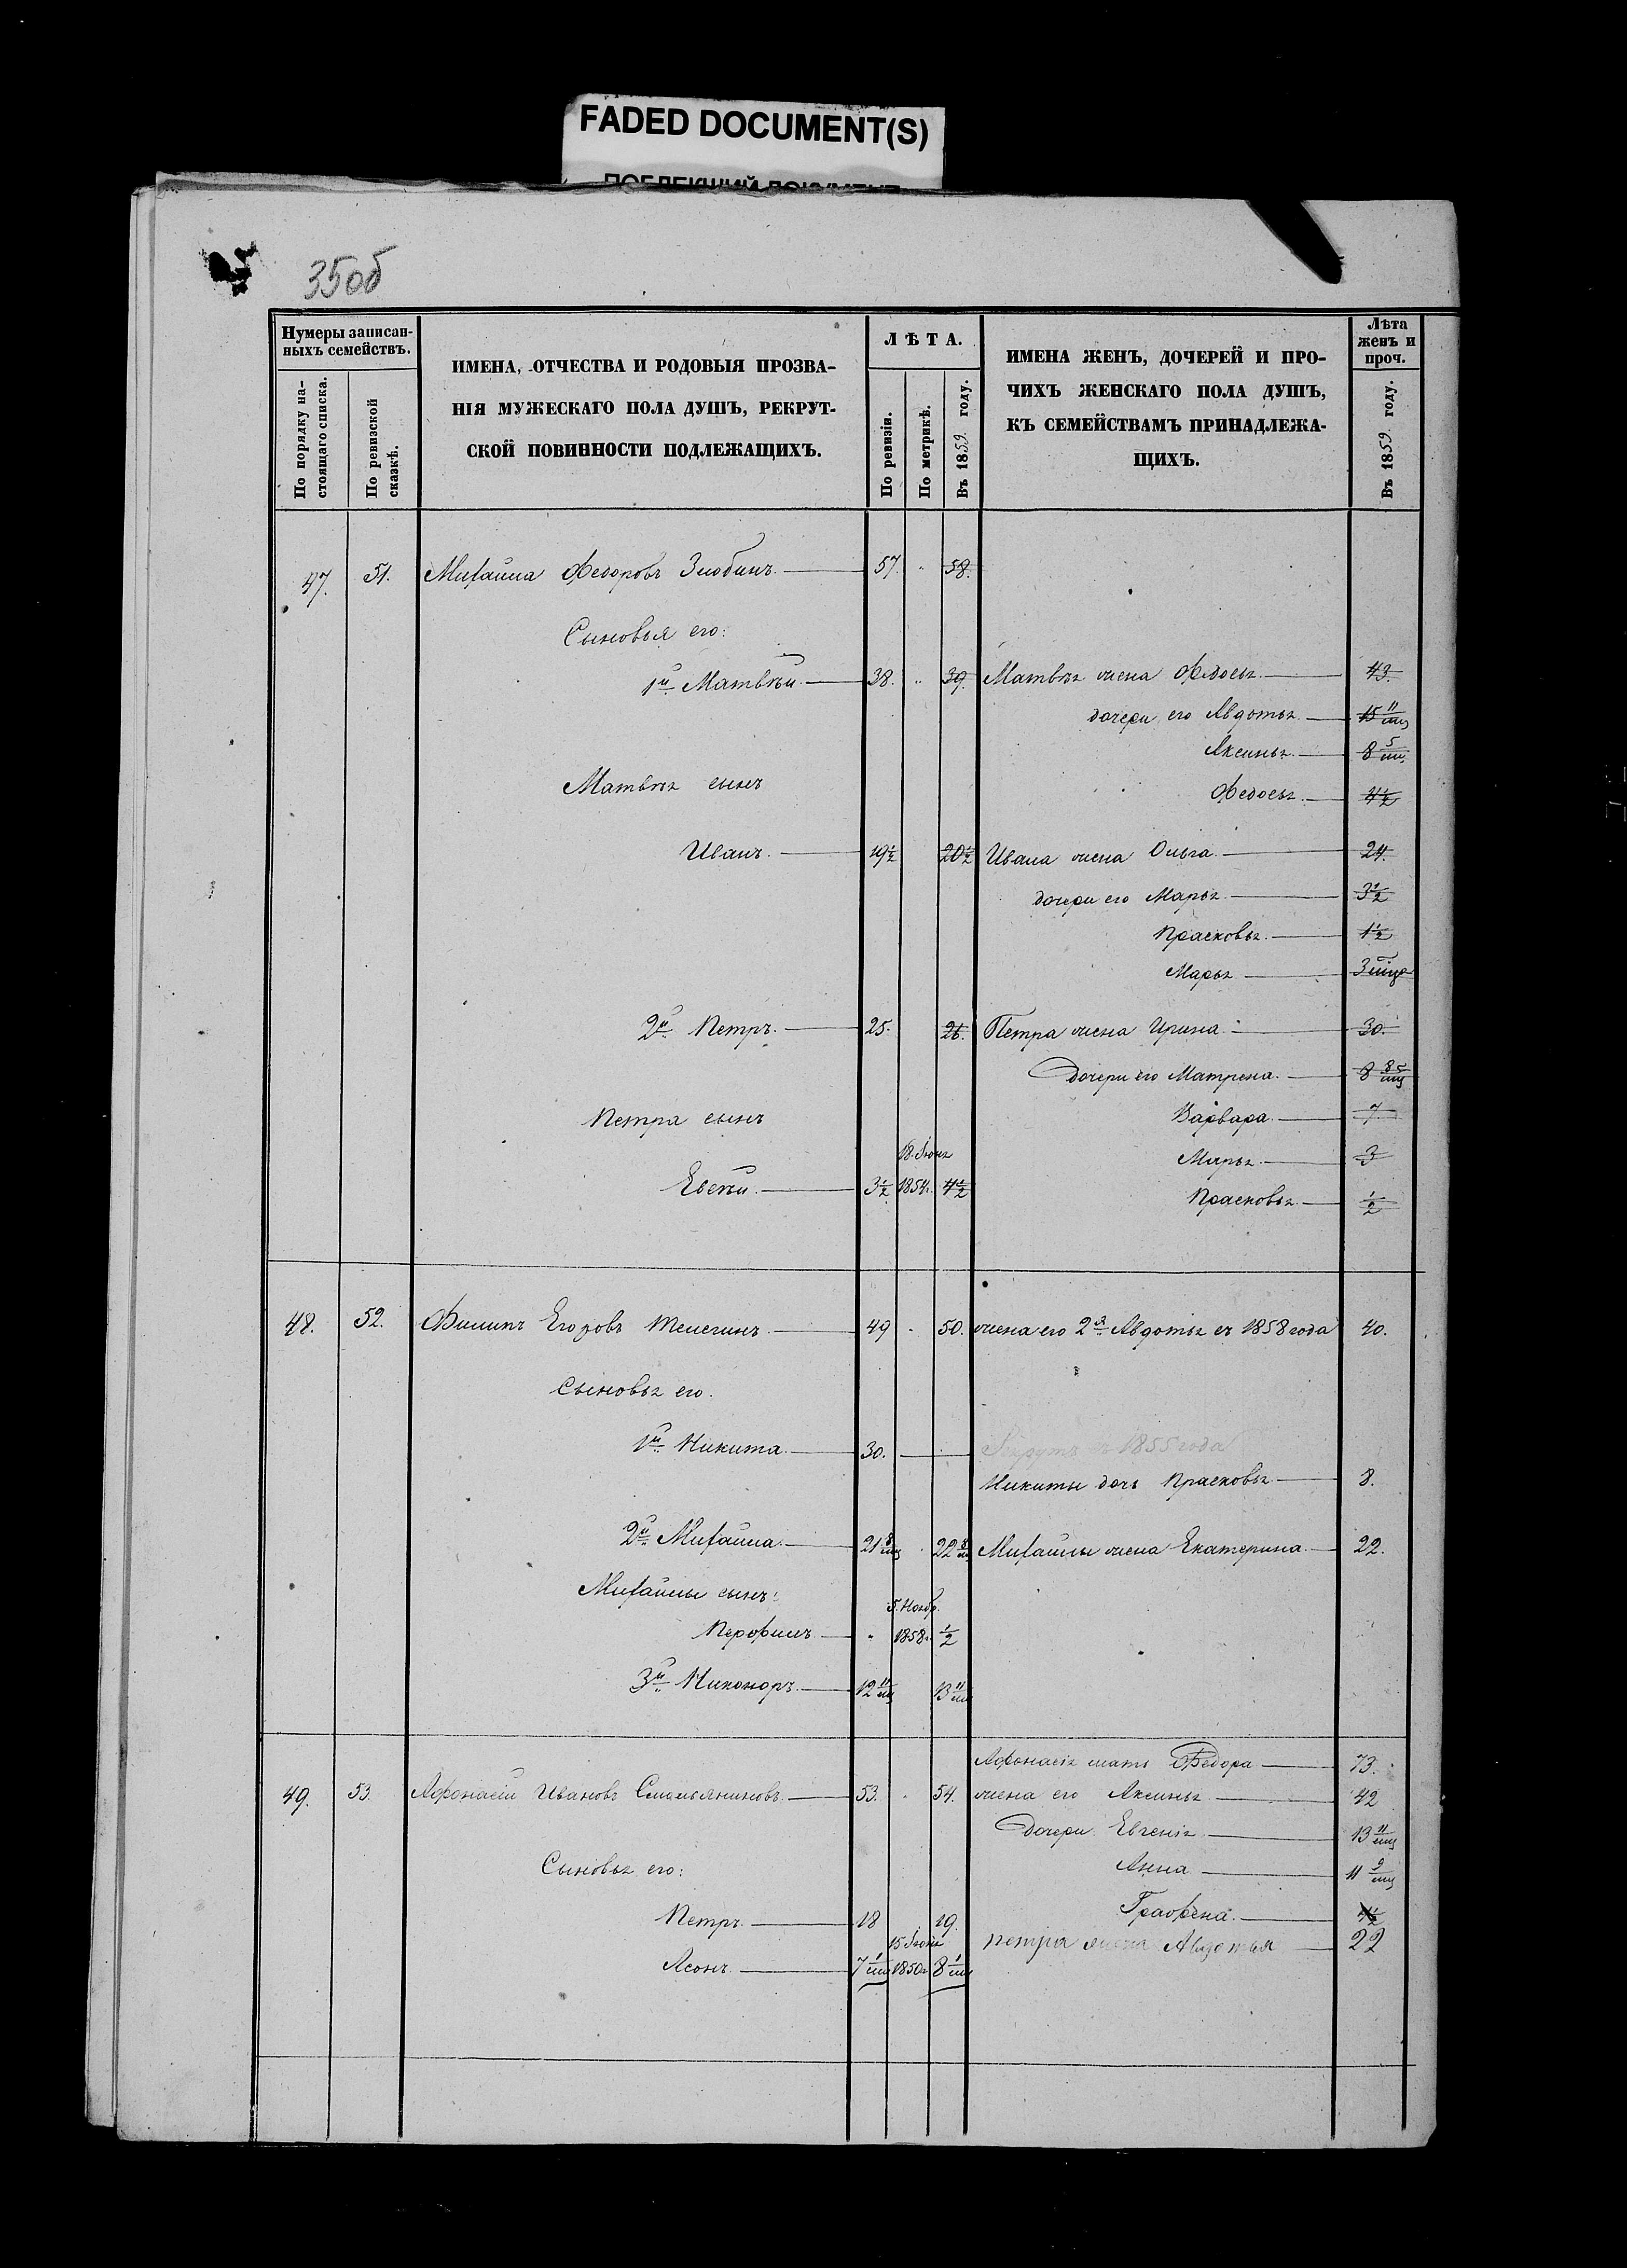 FADED DOCUMENT(S)
35об
Нумеры записан-
ныхъ семействъ.
По порядку на-
стоящаго списка.
По ревизской
сказкѣ.
ИМЕНА, ОТЧЕСТВА И РОДОВЫЯ ПРОЗВА-
НІЯ МУЖЕСКАГО ПОЛА ДУШЪ, РЕКРУТ-
СКОЙ ПОВИННОСТИ ПОДЛЕЖАЩИХЪ.
ЛѢТА.
По ревизіи.
По метрикѣ.
Въ 1859 году.
ИМЕНА ЖЕНЪ, ДОЧЕРЕЙ И ПРО-
ЧИХЪ ЖЕНСКАГО ПОЛА ДУШЪ,
КЪ СЕМЕЙСТВАМЪ ПРИНАДЛЕЖА-
ЩИХЪ.
Лѣта
женъ и
проч.
Въ 1859 году.
47. 51. Михайла Федоровъ Злобинъ. 57. " 58.
Сыновья его:
1й Матвѣй. 38. " 39. Матвѣя жена Федосья. 43.
дочери его Авдотья. 15 11/мц
Аксинья. 8 5/мц
Матвѣя сынъ Федосья. 4½
Иванъ. 19½ 20½ Ивана жена Ольга. 24.
дочери его Марья 3½
Прасковья. 1½
Марья 3 мѣца
2й Петръ. 25. 26. Петра жена Ирина. 30.
Дочери его Матрена. 8
Петра сынъ Варвара. 7
18. Іюня Марья. 3
Евсѣй. 3½ 1854г. 4½ Прасковья. ½
48. 52. Филипъ Егоровъ Телегинъ. 49 " 50. жена его 2я Авдотья съ 1858 года 40.
Сыновья его.
1й Никита. 30. Рекрутъ съ 1855 года
Никиты дочь Прасковья 8.
2й Михайла. 21 8/мц " 22 8/мц Михайлы жена Екатерина. 22.
Михайлы сынъ: 5. Ноябр.
Перофилъ " 1858г. ½
3й Миконоръ. 12 11/мц 13 11/мц
Афонасія мать Федора 73.
49. 53. Афонасій Ивановъ Смольяниновъ. 53. " 54. жена его Аксинья 42
Дочери Евгенія 13 11/мц
Сыновья его: Анна 11 9/мц
Петръ 18 19. Графена.
15 Іюня Петра жена Авдотья 22
Асонъ. 7 1/мц 1850г 8 1/мц